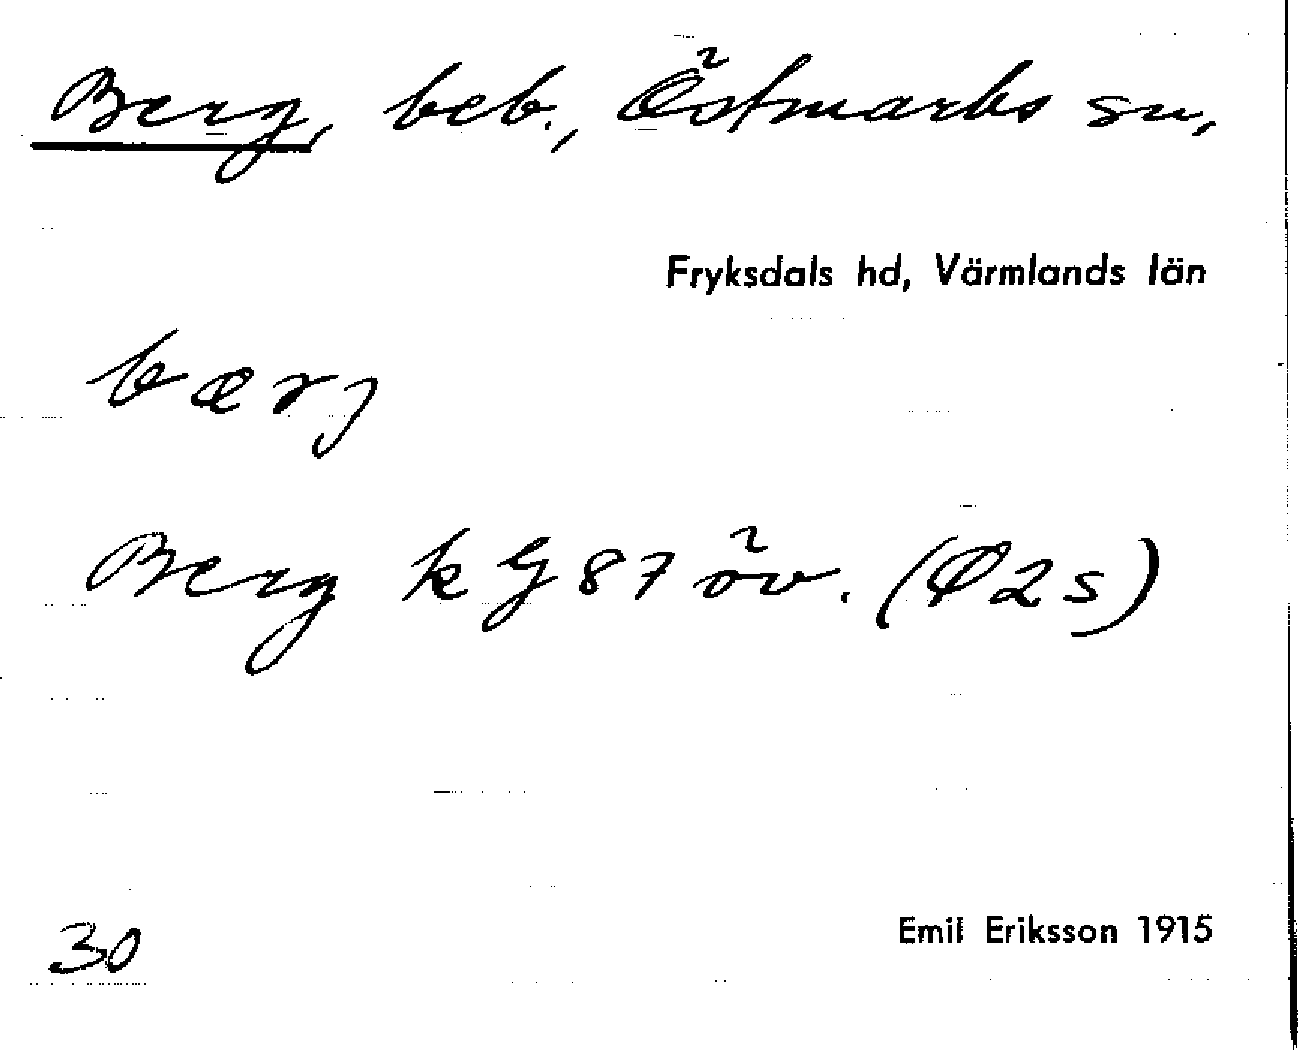 Berg, beb., Östmarks sn,
Fryksdals hd, Värmlands län
bærj
Berg k G 87 öv. (Ö2s)
30
Emil Eriksson 1915